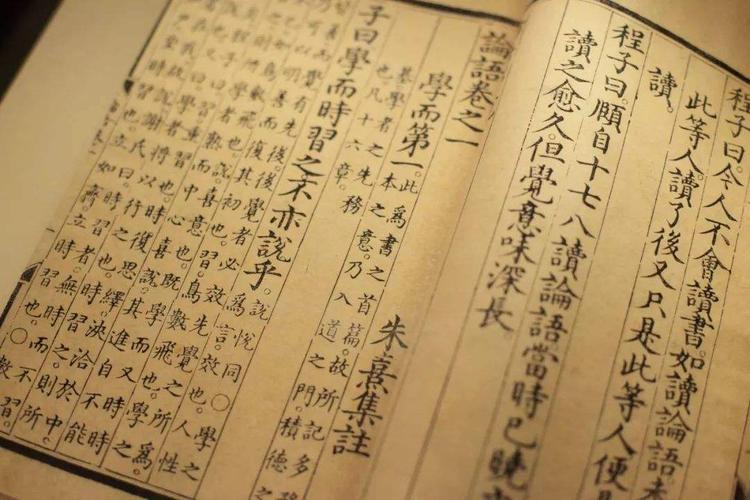 程子曰。今人不會讀書。如讀論語。
此等人。讀了後又只是此等人。便是
讀。
程子曰。頤自十七八讀論語。當時已曉
讀之愈久。但覺意味深長。
論語卷之一
朱熹集註
學而第一。此爲書之首篇。故所記多
本之意。乃入道之門。積德之
基。學者之先務
也。凡十六章。
子曰學而時習之不亦說乎。說悅同。○學之
爲言效也。人性
善。而覺有先後。後覺者必效先覺之所爲。
乃可以明善而復其初也。習。鳥數飛也。學之
鳥數飛也。說。喜意也。既學而又時時
學者熟。而中心喜說。其進自不能
程子曰。習。重習也。時復思繹。浹洽於中。
則
學者。將以行之也。時習之。則所
故說。謝氏曰。時習者。無時而不習。
如
立如齊。立時習也。○